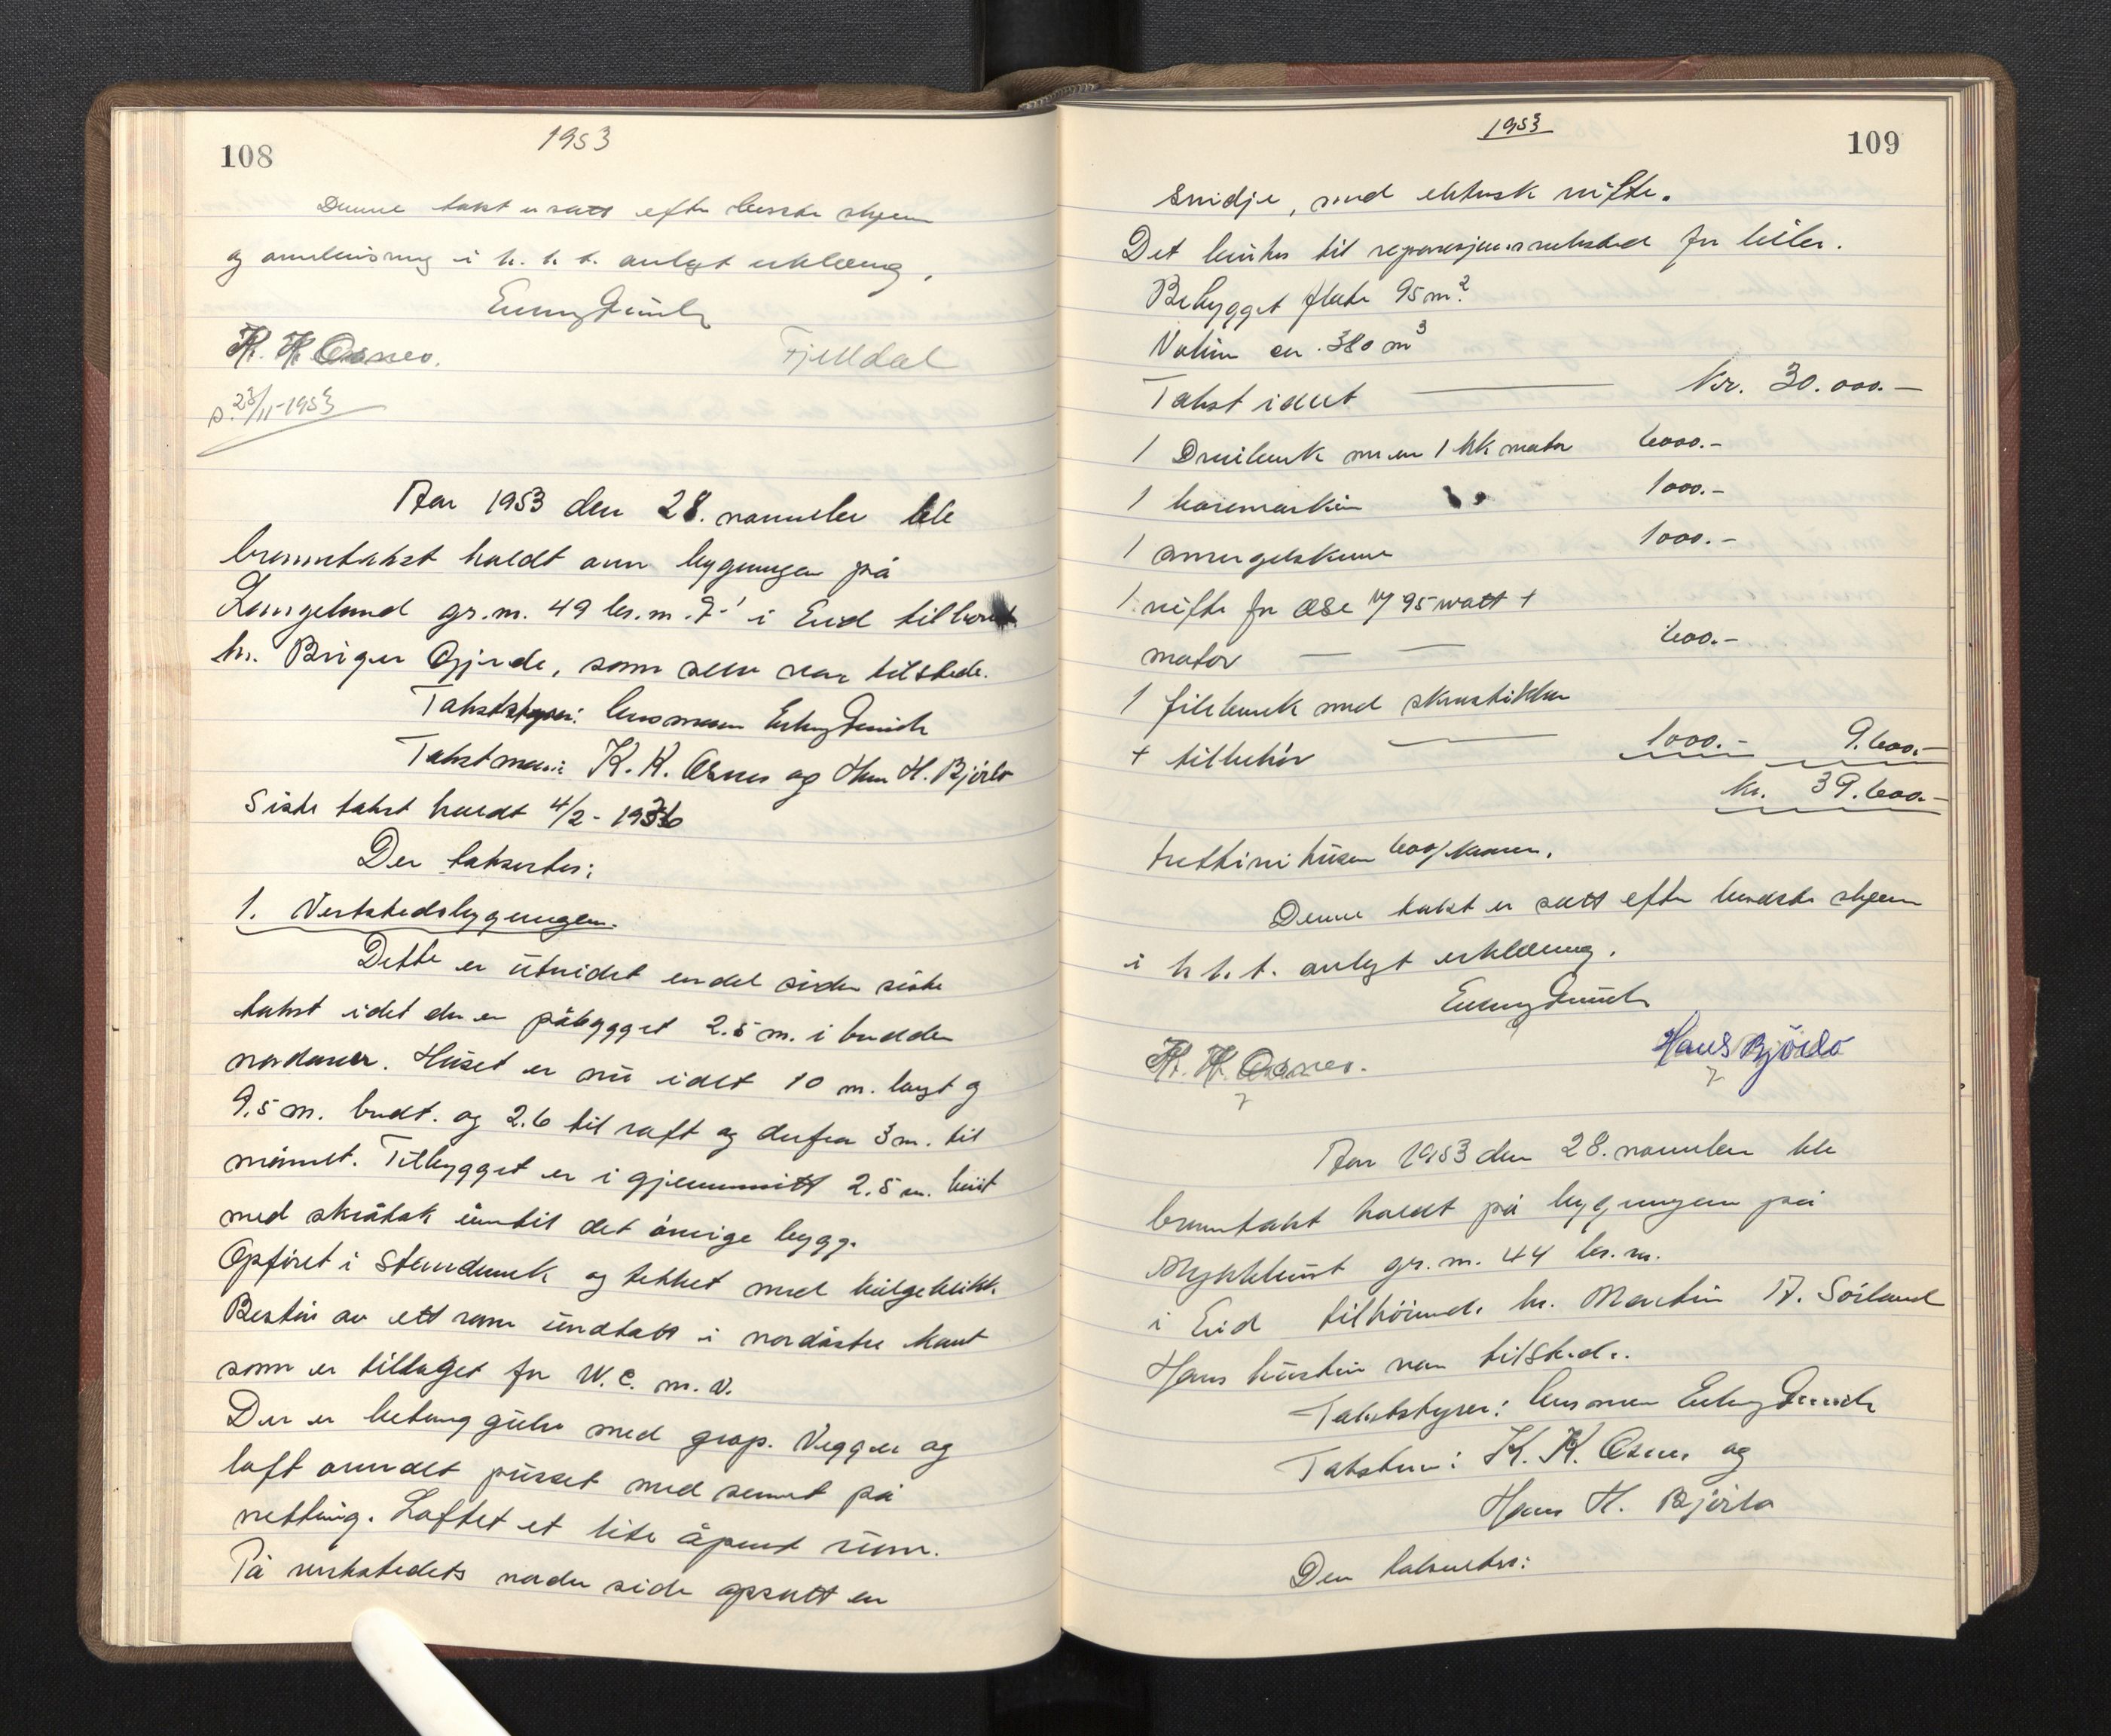 108
1953
Denne takst er satt efter beste skjønn
og anvisning i h. t. avlagt erklæring.
K. K. Osnes.
Fjelldal
D. 23/11-1953
Aar 1953 den 28. november ble
branntakst holdt over bygningen på
Langeland gr.nr. 49 br.nr. i Eid tilhørende
hr. Birger Gjerde, som selv var tilstede.
Takststyrer: lensmann
Takstmenn: K. K. Osnes og Hans H. Bjørlo
Siste takst holdt 4/2-1936
Der takseres:
1. Verkstedsbygningen.
Dette er utvidet endel siden siste
takst idet der er påbygget 2.5 m. i bredden
nordover. Huset er nu idet 10 m. langt og
9.5 m. bredt. og 2.6 til raft og derfra 3 m. til
mønnet. Tilbygget er i gjennemsnitt 2.5 m. høit
med skråtak inntil det øvrige bygg.
Opføret i standverk og tekket med bølgeblikk.
Består av ett rom undtatt i nordøstre kant
som er tillaget for W.C. m.v.
Der er betonggulv med grop. Vegger og
loft overalt pusset med sement på
netting. Loftet et lite åpent rum.
På verkstedets nordre side opsatt en
1953
109
smidje, med elektrisk vifte.
Det brukes til reparasjonsverksted for biler.
Bebygget flate 95 m²
Volum ca. 380 m³
Takst idet — kr. 30.000.-
1 Dreibenk m en 1 hk motor 6000.-
1 boremaskin 1000.-
1 smergelskive 1000.-
1 vifte for esse m/ 95 watt +
motor — — 600.-
1 filebenk med skrustikker
+ tilbehør — 1000.- 9.600.-
kr. 39.600.-
Trettini tusen 600/kroner.
Denne takst er satt efter beste skjønn
i h h. t. avlagt erklæring.
K. K. Osnes.
Hans Bjørlo
Aar 1953 den 28. november ble
branntakst holdt på bygningen på
Myklebust gr.nr. 44 br.nr.
i Eid tilhørende hr. Martin A. Sørland
Hans hustru var tilstede.
Takststyrer: lensmann
Takstm: K. K. Osnes og
Hans H. Bjørlo
Der takseres: